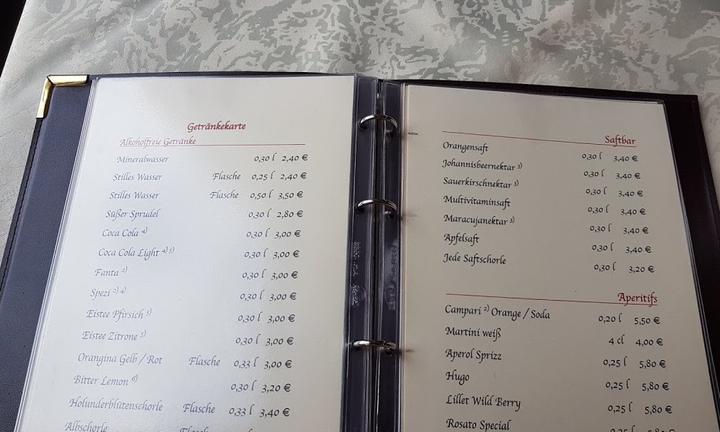 Getränkekarte
Alkoholfreie Getränke
Mineralwasser 0,30 l 2,40 €
Stilles Wasser Flasche 0,25 l 2,40 €
Stilles Wasser Flasche 0,50 l 3,50 €
Süßer Sprudel 0,30 l 2,80 €
Coca Cola 4) 0,30 l 3,00 €
Coca Cola Light 4) 5) 0,30 l 3,00 €
Fanta 2) 0,30 l 3,00 €
Spezi 2) 4) 0,30 l 3,00 €
Eistee Pfirsich 5) 0,30 l 3,00 €
Eistee Zitrone 5) 0,30 l 3,00 €
Orangina Gelb / Rot Flasche 0,33 l 3,00 €
Bitter Lemon 6) 0,30 l 3,20 €
Holunderblütenschorle Flasche 0,33 l 3,40 €
Albschorle Flasche
Saftbar
Orangensaft 0,30 l 3,40 €
Johannisbeernektar 3) 0,30 l 3,40 €
Sauerkirschnektar 3) 0,30 l 3,40 €
Multivitaminsaft 0,30 l 3,40 €
Maracujanektar 3) 0,30 l 3,40 €
Apfelsaft 0,30 l 3,40 €
Jede Saftschorle 0,30 l 3,20 €
Aperitifs
Campari 2) Orange / Soda 0,20 l 5,50 €
Martini weiß 4 cl 4,00 €
Aperol Sprizz 0,25 l 5,80 €
Hugo 0,25 l 5,80 €
Lillet Wild Berry 0,25 l 5,80 €
Rosato Special 0,25 l 5,80 €